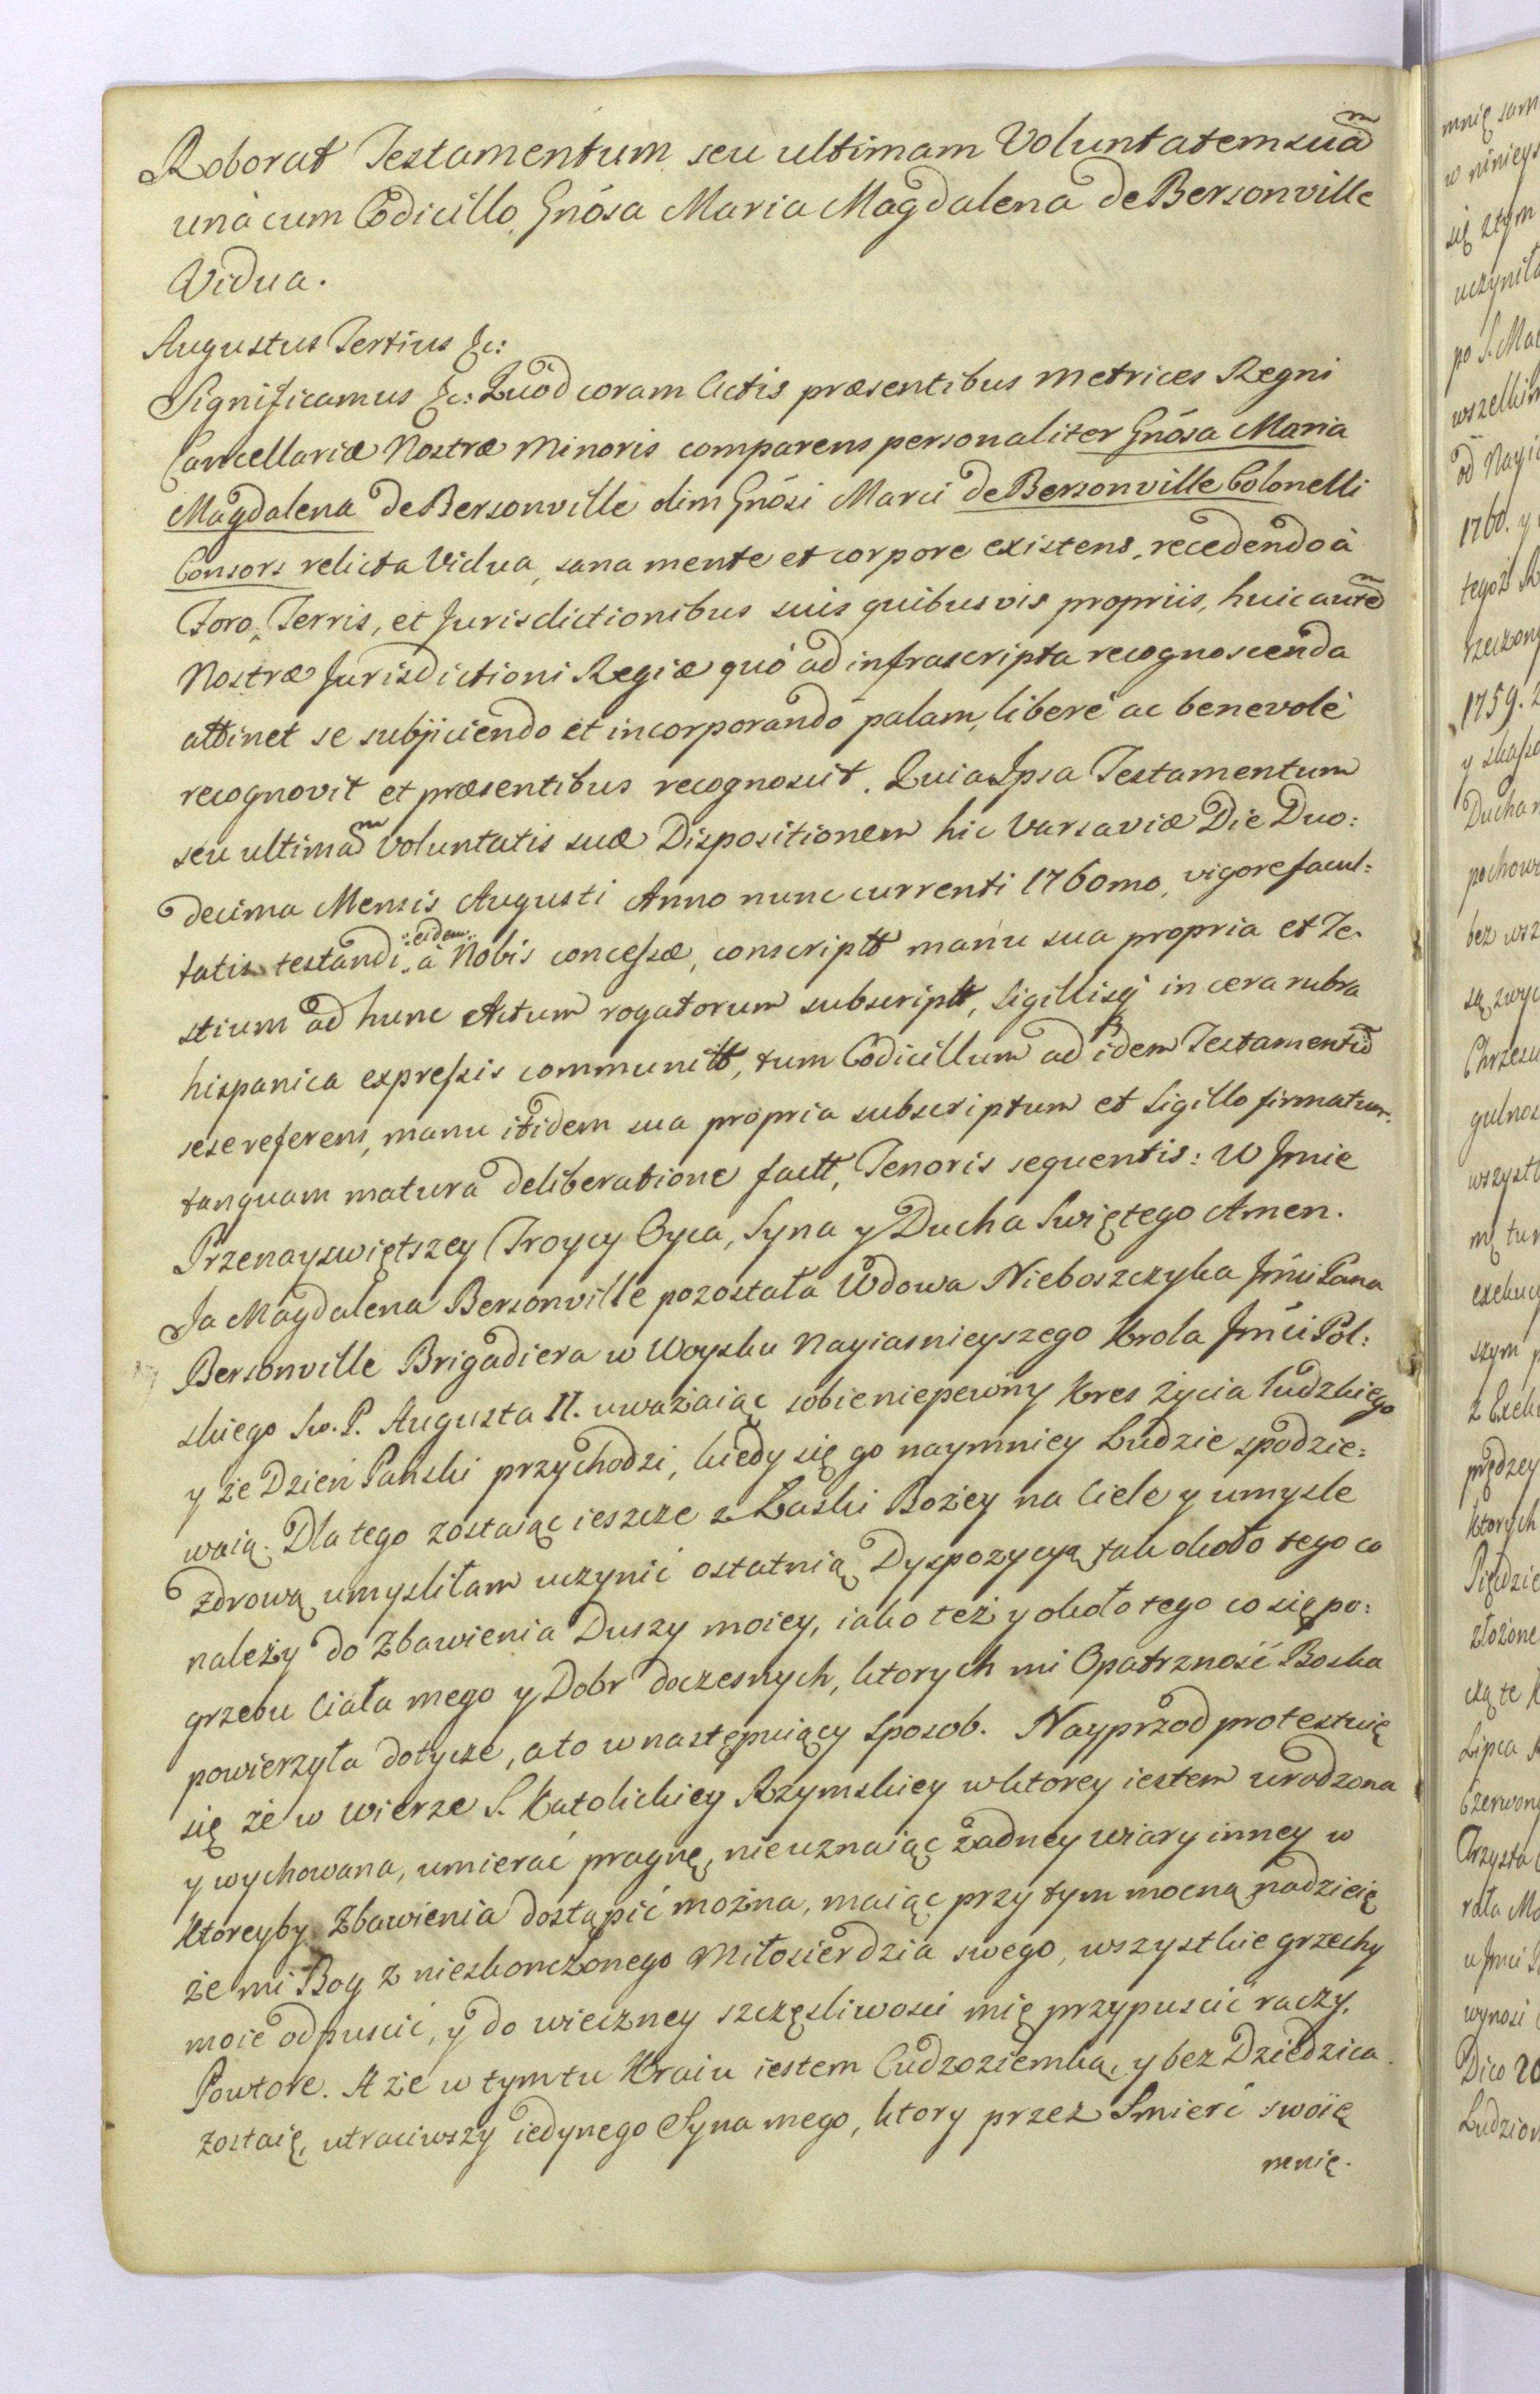 Roborat Testamentum seu ultimam Voluntatem suam̃
unà cum Codicillo, Gnósa Maria Magdalena de Bersonville
Vidua.
Augustus Tertius &c:
Significamus &c: Quod coram Actis præsentibus Metrices Regni
Cancellariæ Nostræ Minoris comparens personaliter Gnósa Maria
Magdalena de Bersonville olim Gnósi Marci de Bersonville Colonelli
Consors relicta Vidua, sana mente et corpore existens, recedendo à
Foro, Terris, et Jurisdictionibus suis quibusvis propriis, huic autem̃
Nostræ Jurisdictioni Regiæ quó ad infrascripta recognoscenda
attinet se subjiciendo et incorporando palam, liberè ac benevolè
recognovit et præsentibus recognoscit. Quia Ipsa Testamentum
seu ultimam̃ Voluntatis suæ Dispositionem hic Varsaviæ Die Duo:
decima Mensis Augusti Anno nunc currenti 1760mo, vigore facul:
tatis testandi :eidem: à Nobis concessæ, conscriptt manu sua propria et Te-
stium ad hunc Actum rogatorum subscriptt, Sigillisq in cera rubra
hispanica expressis communitt, tum Codicillum ad idem Testamentũ
sese referens, manu itidem sua propria subscriptum et Sigillo firmatum
tanquam matura deliberatione factt, Tenoris sequentis: W Jmie
Przenayswiętszey Troycy Oyca, Syna y Ducha Swiętego Amen.
Ja Magdalena Bersonville pozostała Wdowa Nieboszczyka Jmći Pana
Bersonville Brigadiera w Woysku Nayiasnieyszego Krola Jmći Pol:
skiego Sw. P. Augusta II. uważaiąc sobie niepewny Kres życia ludzkiego
y że Dzień Pański przychodzi, kiedy się go naymniey Ludzie spodzie:
waią. Dla tego zostaiąc ieszcze z Łaski Bożey na Ciele y umysle
zdrową umysliłam uczynić ostatnią Dyspozycyą tak około tego co
należy do Zbawienia Duszy moiey, iako też y około tego co się po:
grzebu Ciała mego y Dobr doczesnych, ktorych mi Opatrzność Boska
powierzyła dotycze, a to w następuiący sposob. Nayprzod protestuię
się że w wierze S. Katolickiey Rzymskiey w ktorey iestem urodzona
y wychowana, umierać pragnę, nie uznaiąc żadney wiary inney w
ktoreyby Zbawienia dostąpić można, maiąc przy tym mocną nadzieię
że mi Bog z nieskończonego Miłosierdzia swego, wszystkie grzechy
moie odpuscić, y do wieczney szczęsliwosci mię przypuscić raczy.
Powtore. A że w tym tu Kraiu iestem Cudzoziemką, y bez Dziedzica
zostaię, utraciwszy iedynego Syna mego, ktory przez Smierć swoię
menię.
mnię sam
się z tym
uczyniła
1760. y
tegoż
1759.
pochow
bez wsz
są zwyc
gulnos
szym p
prędzey
ktorych
złożone
Lipca
Czerwony
wynosi
Dico 20